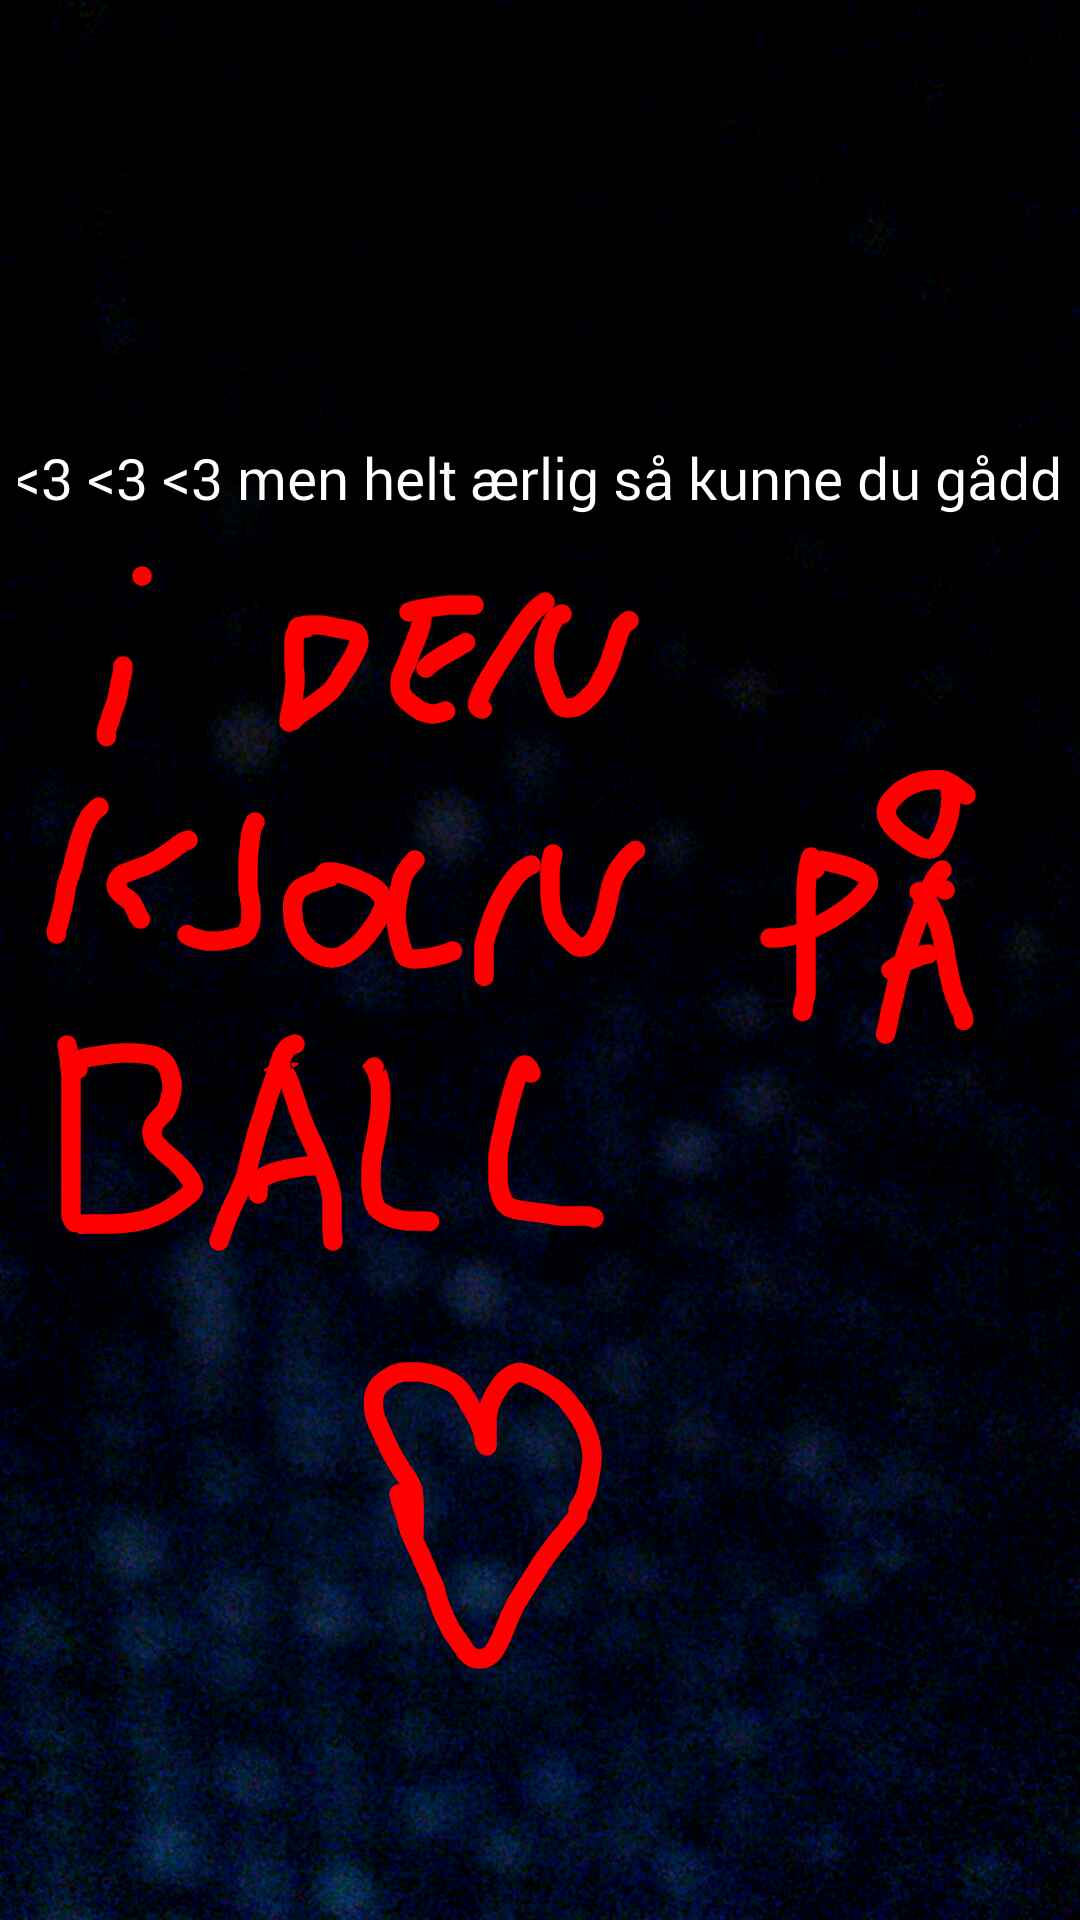 <3 <3 <3 men helt ærlig så kunne du gådd
i DEN
KJOLN PÅ
BALL